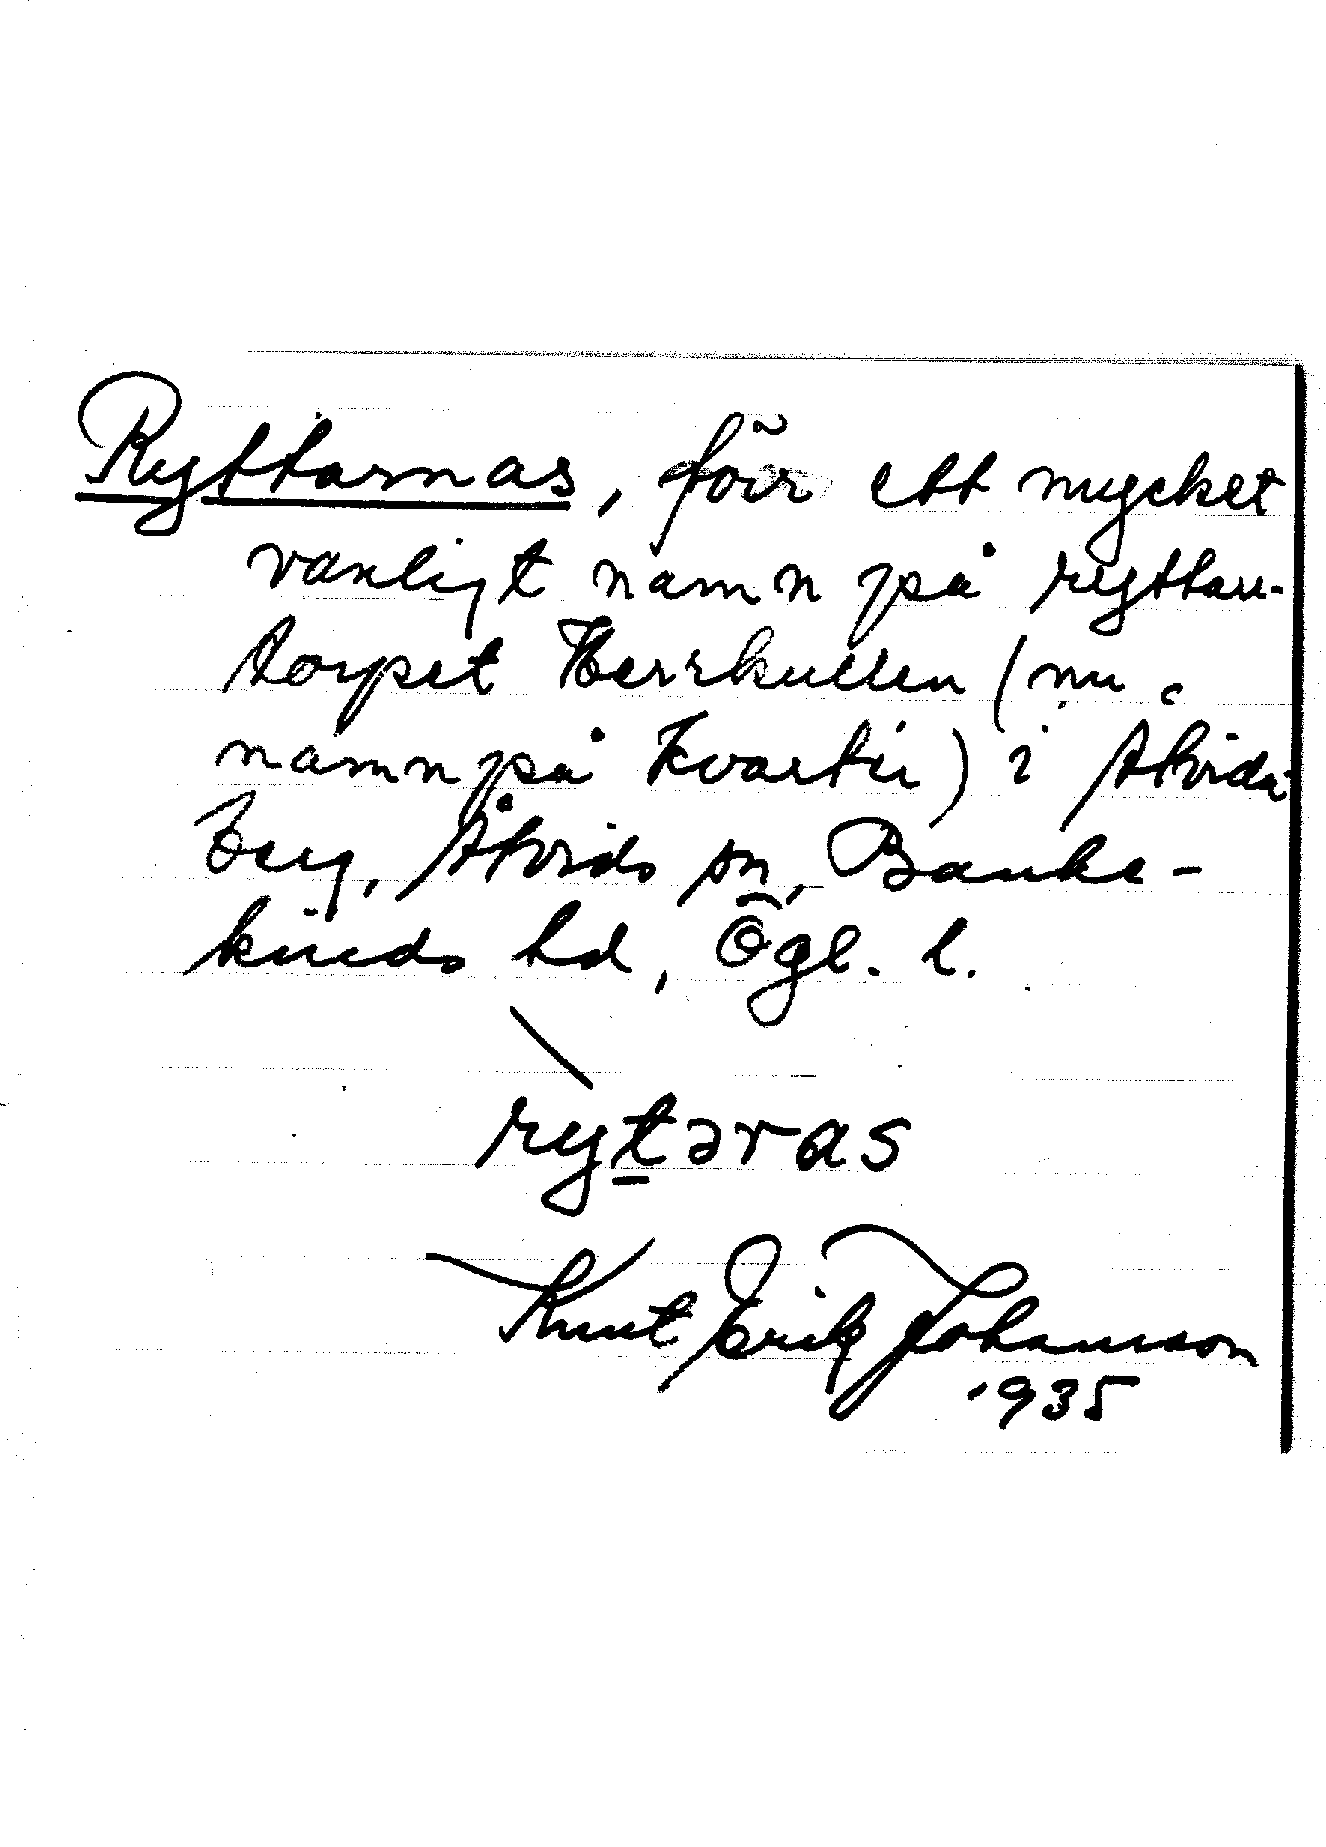 Ryttarnas, förr ett mycket
vanligt namn på ryttar-
torpet Herrkullen (nu
namn på kvarter) i Åtvida-
berg, Åtvids sn, Banke-
kinds hd, Ögl. l.
rytəras
Knut Erik Johansson
1935